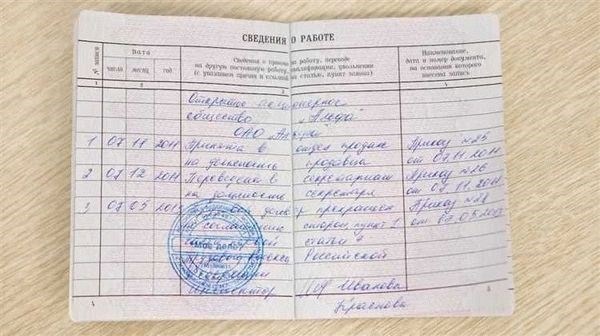 СВЕДЕНИЯ О РАБОТЕ
№ записи
Дата
число месяц год
Сведения о приеме на работу, переводе
на другую постоянную работу, квалификации, увольнении
(с указанием причин и ссылкой на статью, пункт закона)
Наименование,
дата и номер документа,
на основании которого
внесена запись
1 2 3 4
Открытое акционерное
общество "Альфа"
ОАО "Альфа"
1 07 11 2011 Принята в отдел продаж Приказ №25
на должность продавца от 07.11.2011
2 07 12 2011 Переведена в секретариат Приказ №26
на должность секретаря
3 07 05 Приказ №28
прекращен
по соглашению сторон, пункт 1
статьи
Трудового кодекса Российской
Федерации
Инспектор Иванова
Краснова
МОЕ ДЕЛО